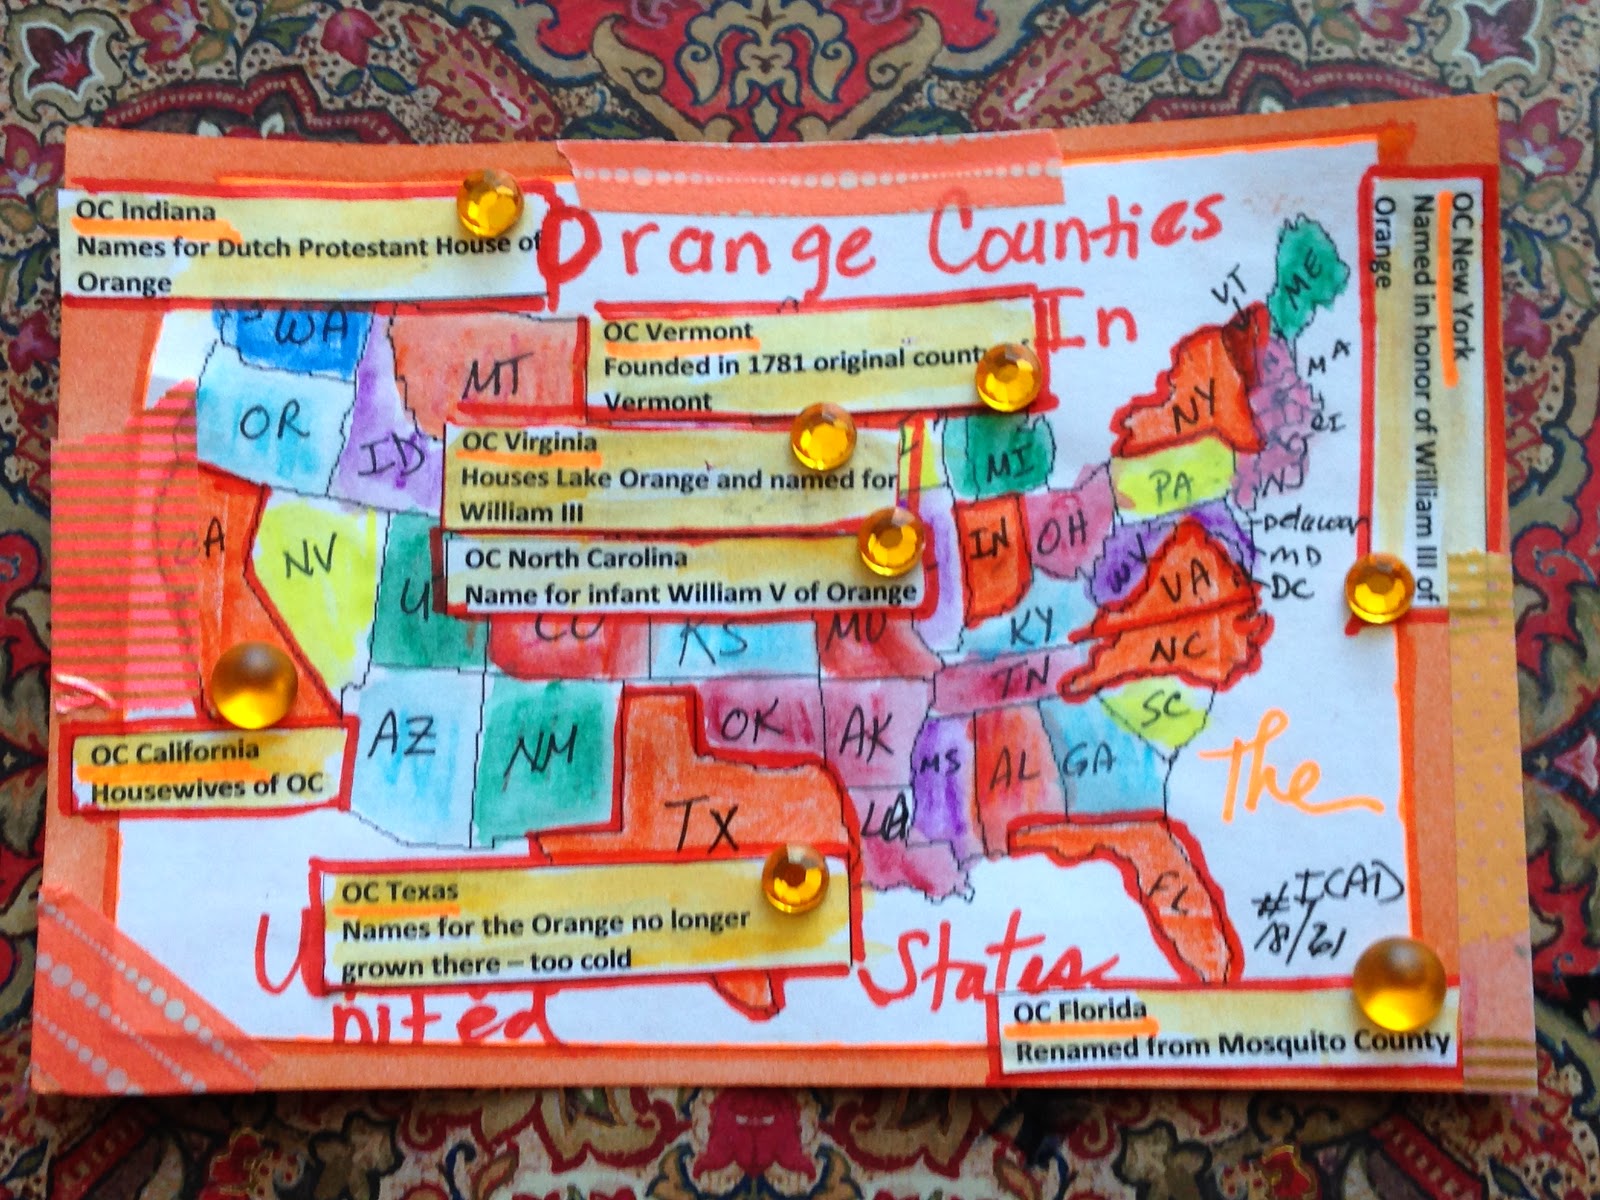 OC Indiana
Names for Dutch Protestant House of
Orange
Orange Counties
In
The
United States
OC Vermont
Founded in 1781 original
Vermont
OC Virginia
Houses Lake Orange and named for
William III
OC North Carolina
Name for infant William V of Orange
OC New York
Named in honor of William III of
Orange
OC California
Housewives of OC
OC Texas
Names for the Orange no longer
grown there – too cold
OC Florida
Renamed from Mosquito County
WA
MT
OR
ID
NV
CO
KS
MO
AZ
NM
OK
AK
TX
LA
MS
AL
GA
FL
SC
NC
TN
KY
VA
WV
IN
OH
MI
PA
NY
VT
ME
MA
RI
NJ
Delawar
MD
DC
#ICAD